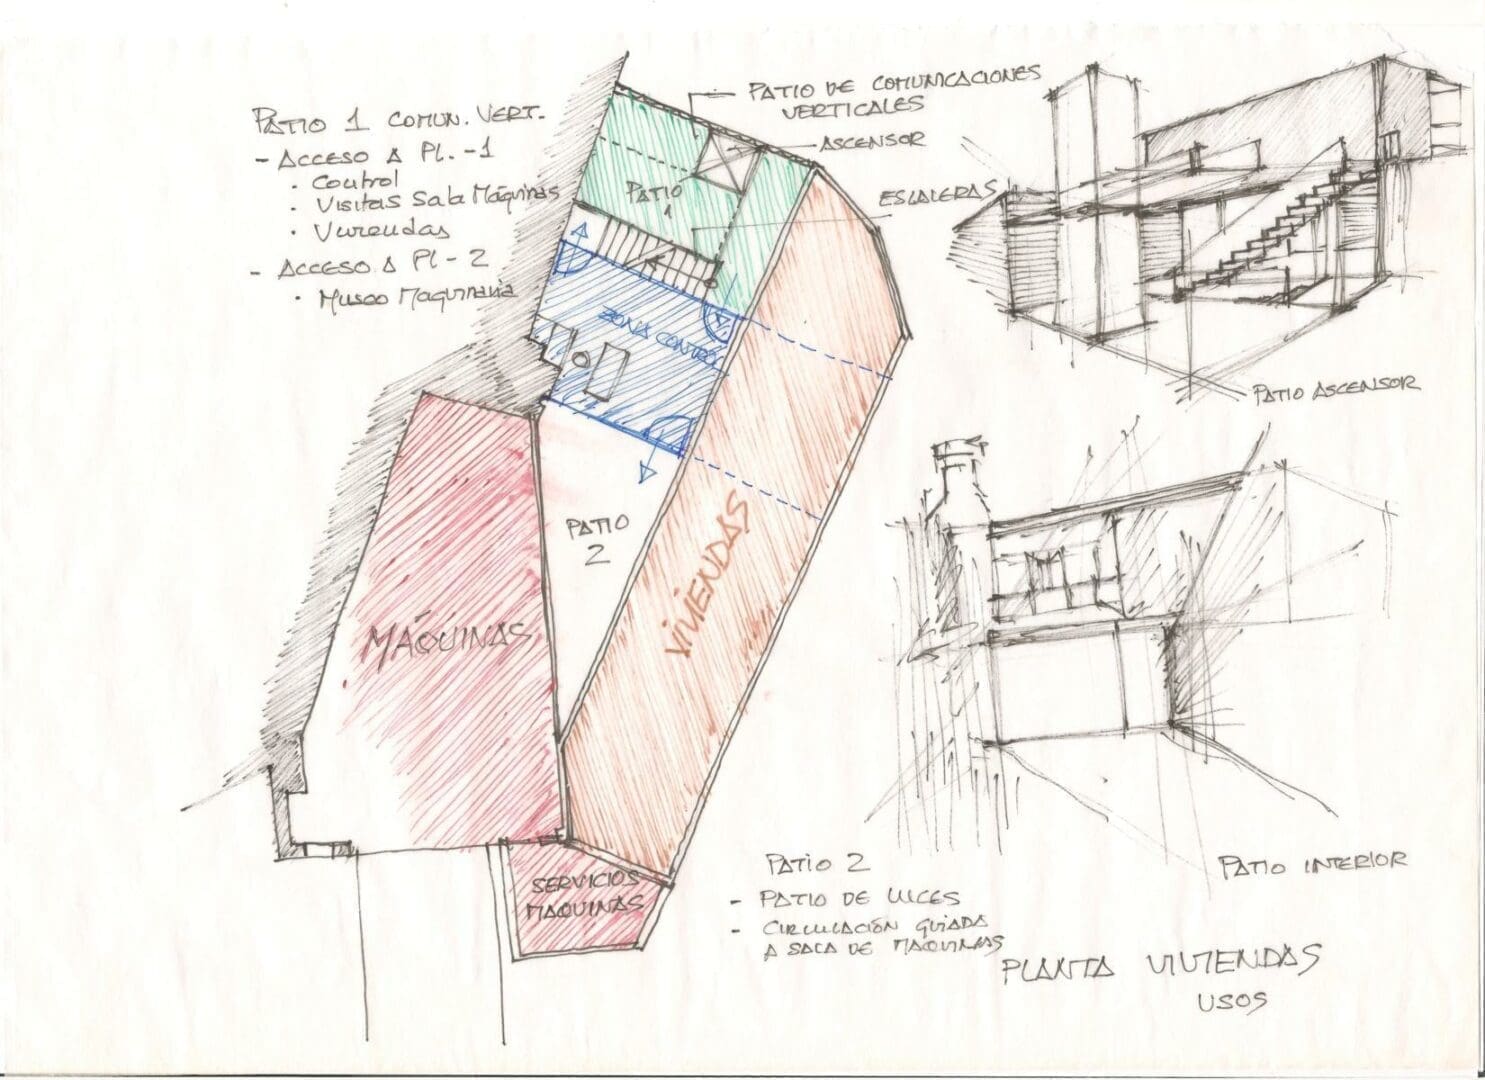 PATIO 1 COMUN. VERT.
- ACCESO A PL. -1
· Control
· Visitas Sala Máquinas
· Viviendas
- ACCESO A PL - 2
· Museo Maquinaria
PATIO DE COMUNICACIONES
VERTICALES
ASCENSOR
ESCALERAS
PATIO
1
ZONA CONTROL
PATIO
2
MÁQUINAS
VIVIENDAS
SERVICIOS
MAQUINAS
PATIO ASCENSOR
PATIO INTERIOR
PATIO 2
- PATIO DE LUCES
- CIRCULACIÓN GUIADA
A SALA DE MAQUINAS
PLANTA VIVIENDAS
USOS